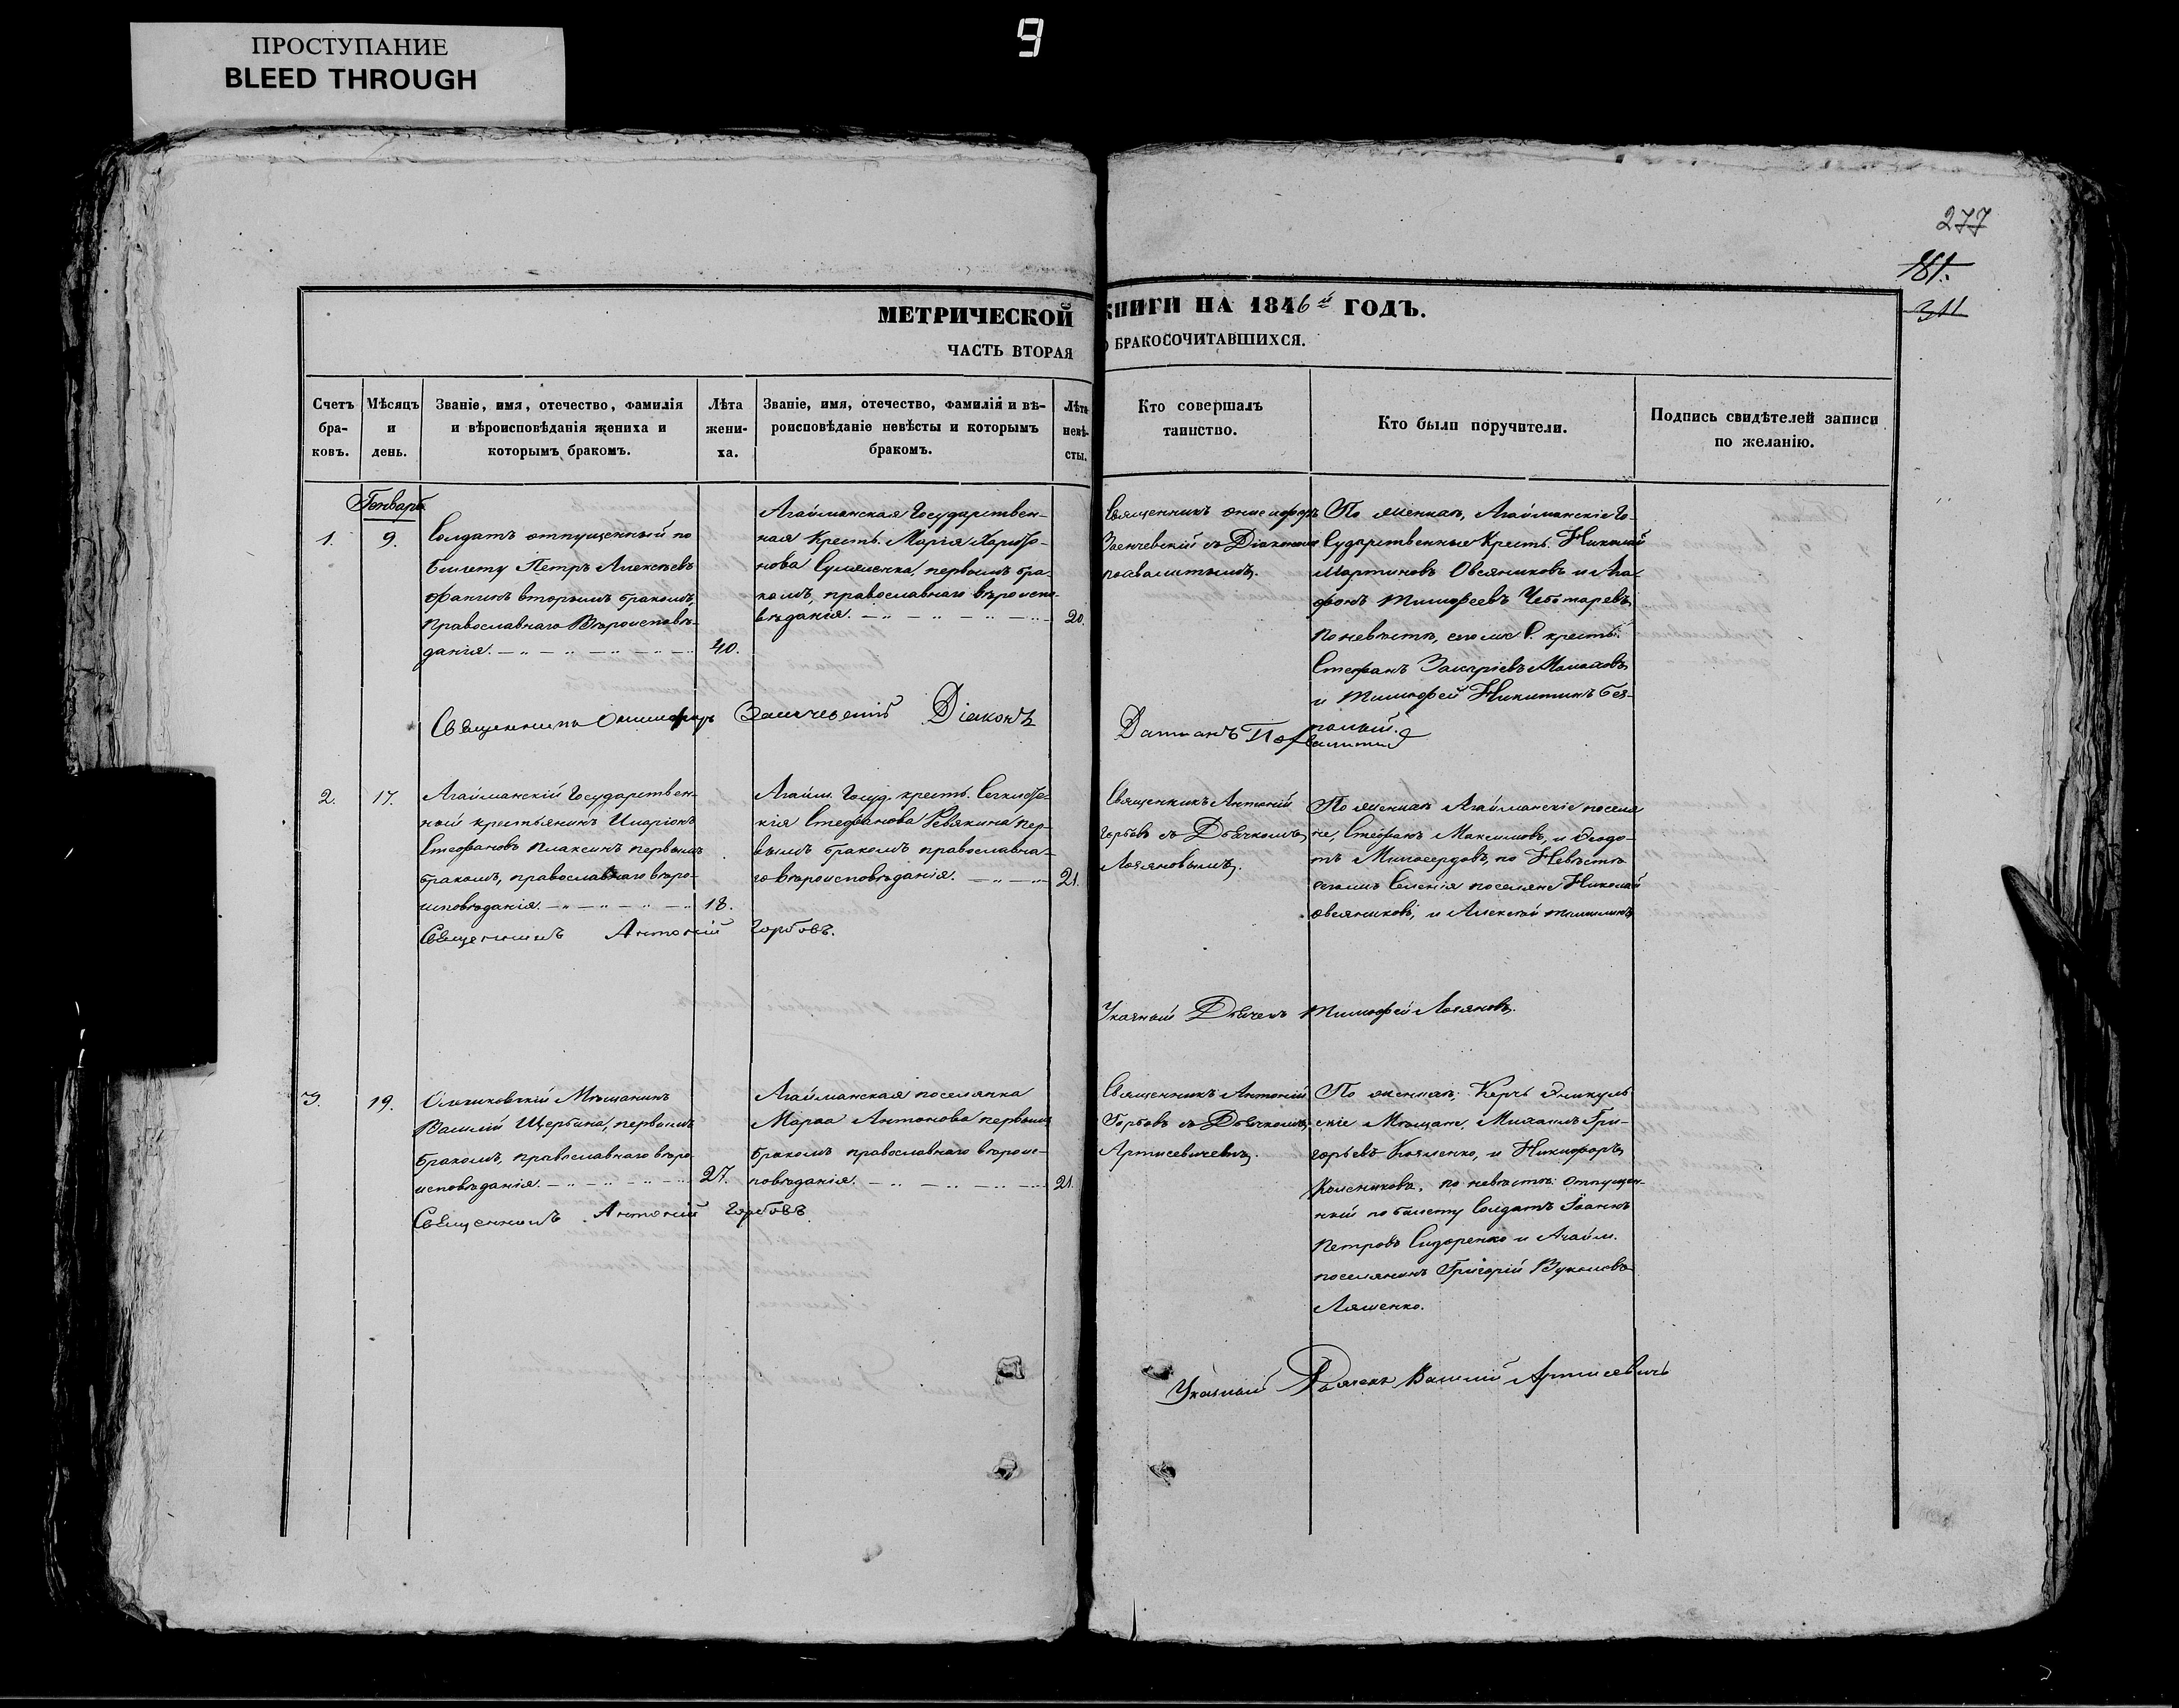 ПРОСТУПАНИЕ
BLEED THROUGH
9
277
181.
311
МЕТРИЧЕСКОЙ КНИГИ НА 1846й ГОДЪ.
ЧАСТЬ ВТОРАЯ О БРАКОСОЧИТАВШИХСЯ.
Счетъ
бра-
ковъ.
Мѣсяцъ
и
день.
Званіе, имя, отечество, фамилія
и вѣроисповѣданія жениха и
которымъ бракомъ.
Лѣта
жени-
ха.
Званіе, имя, отечество, фамилія и вѣ-
роисповѣданіе невѣсты и которымъ
бракомъ.
Лѣта
невѣ-
сты.
Кто совершалъ
таинство.
Кто были поручители.
Подпись свидѣтелей записи
по желанію.
Генварь
1.
9.
Солдатъ отпущенный по
билету Петръ Алексѣевъ
вторымъ бракомъ,
православнаго Вѣроисповѣ-
данія.
40.
Агайманская Государствен-
ная Кресть. Марія Харито-
нова первымъ бра-
комъ, православнаго вѣроиспо-
вѣданія.
20.
Священникъ Онисифоръ
съ Діакономъ
Похвалитымъ.
По женихѣ, Агайманскіе Го-
сударственные Кресть. Николай
Мартиновъ Овсяниковъ и Ага-
фонъ Тимофеевъ Чеботаревъ,
по невѣстѣ, того же С. кресть.
Стефанъ Захаріевъ
и Тимофей Никитинъ Без-
палый.
Священникъ Онисифоръ Діаконъ
Даміанъ Похвалитый
2.
17.
Агайманскій Государствен-
ный крестьянинъ Иларіонъ
Стефановъ Плаксинъ первымъ
бракомъ, православнаго вѣро-
исповѣданія.
18.
Агайм. Госуд. кресть.
Стефанова Ревякина пер-
вымъ бракомъ православна-
го вѣроисповѣданія.
21.
Священникъ Антоній
Горбовъ съ Дьячкомъ
Лозяновымъ.
По женихѣ Агайманскіе поселя
не, Стефанъ Максимовъ, и Феодо-
тъ Милосердовъ, по Невѣстѣ
тогожъ Селенія поселяне Николай
Овсяниковъ, и Алексѣй
Священникъ Антоній Горбовъ.
Указный Дьячекъ Тимофей Лозяновъ.
3.
19.
Мѣщанинъ
Василій Щербина, первымъ
бракомъ, православнаго вѣро
исповѣданія.
27.
Агайманская поселянка
Марѳа Антонова первымъ
бракомъ православнаго вѣроис-
повѣданія.
21.
Священникъ Антоній
Горбовъ съ Дьячкомъ
Артисевичемъ.
По женихѣ; Керчь Эникуль
скіе Мѣщане, Михаилъ Гри-
горьевъ и Никифоръ
Колесниковъ, по невѣстѣ: отпущен-
ный по билету Солдатъ Іоаннъ
Петровъ Сидоренко и Агайм.
поселянинъ Григорій Вуколовъ
Ляшенко.
Священникъ Антоній Горбовъ
Указный Дьячекъ Василій Артисевичъ